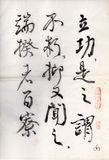 立功是之謂
不朽抑又聞之
端揆者百寮